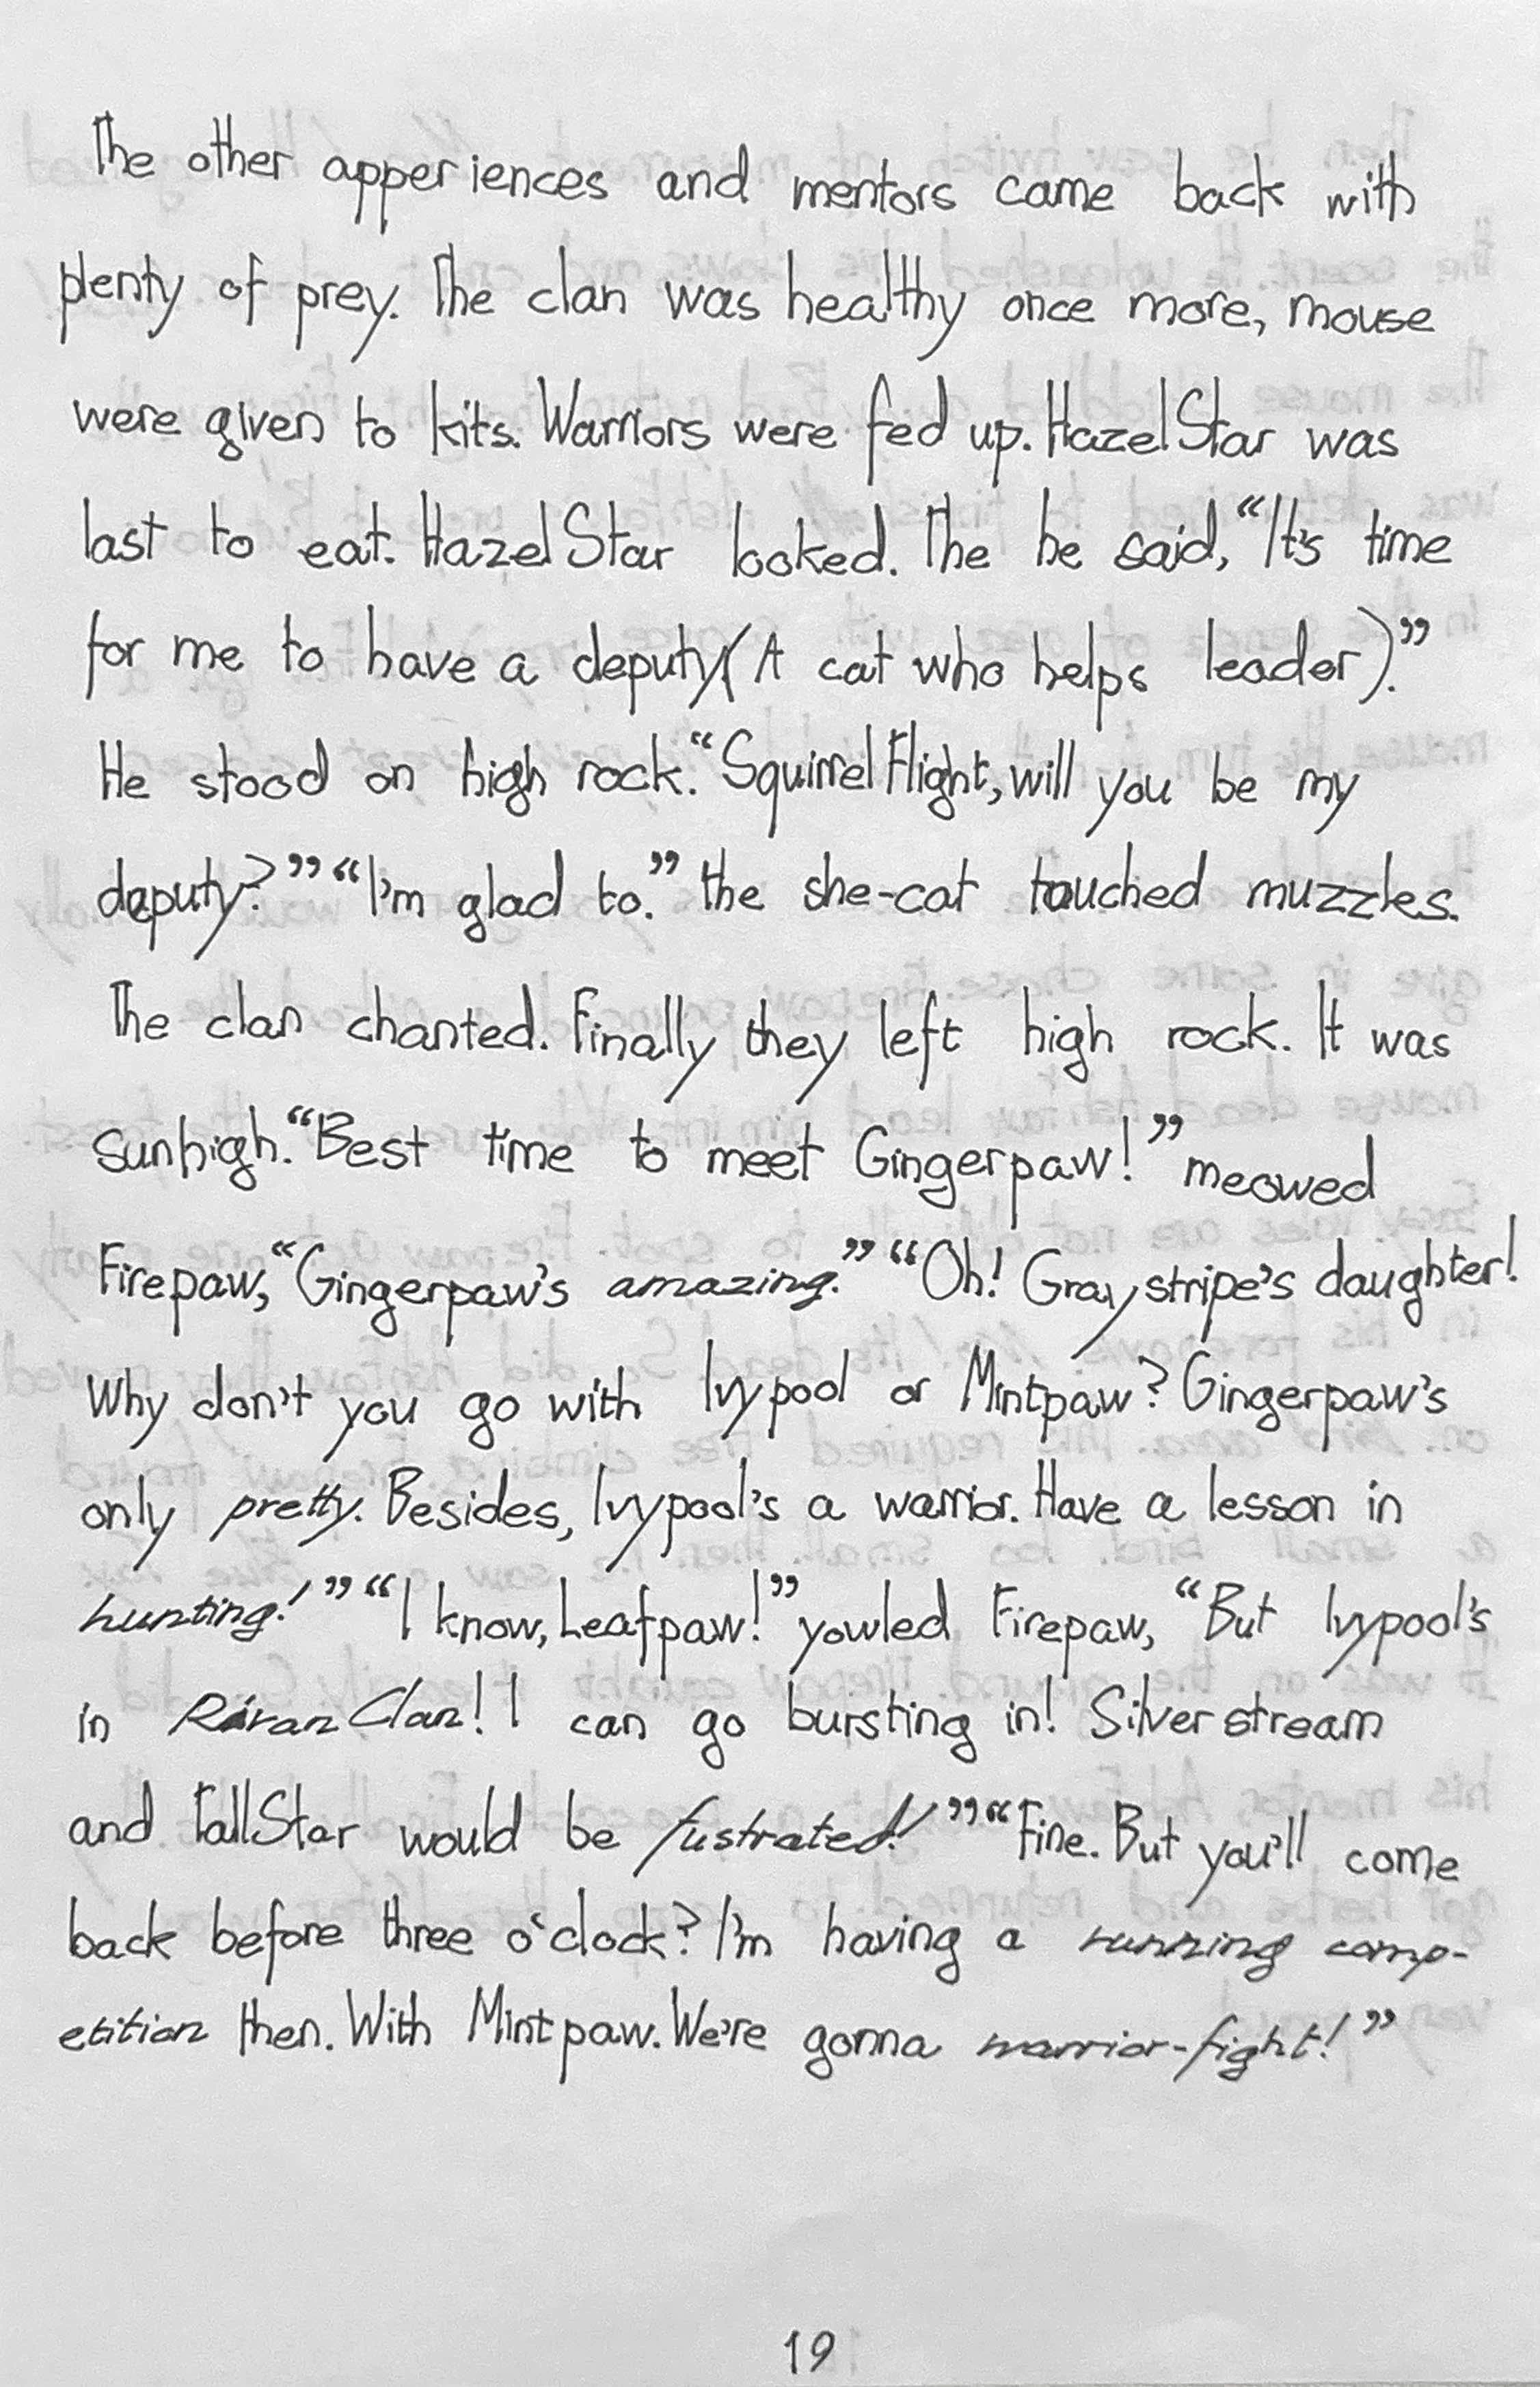 The other apperiences and mentors came back with
plenty of prey. The clan was healthy once more, mouse
were given to kits. Warriors were fed up. HazelStar was
last to eat. HazelStar looked. The he said, “It's time
for me to have a deputy(A cat who helps leader).”
He stood on high rock. “SquirrelFlight, will you be my
deputy?” “I'm glad to.” the she-cat touched muzzles.
The clan chanted. Finally they left high rock. It was
sunhigh. “Best time to meet Gingerpaw!” meowed
Firepaw, “Gingerpaw's amazing.” “Oh! Graystripe's daughter!
Why don't you go with Ivypool or Mintpaw? Gingerpaw's
only pretty. Besides, Ivypool's a warrior. Have a lesson in
hunting!” “I know, Leafpaw!” yowled Firepaw, “But Ivypool's
in RivanClan! I can go bursting in! Silverstream
and TallStar would be fustrated!” “Fine. But you'll come
back before three o'clock? I'm having a running comp-
etition then. With Mintpaw. We're gonna warrior-fight!”
19